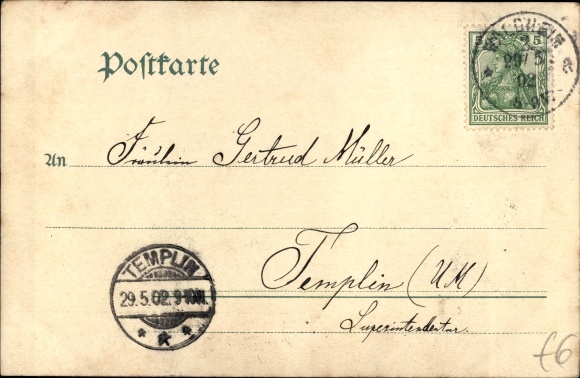 Postkarte
5 5
29/5
02
DEUTSCHES REICH
An Fräulein Gertrud Müller
Templin (UM)
Superintendentur.
TEMPLIN
29.5.02.
f6